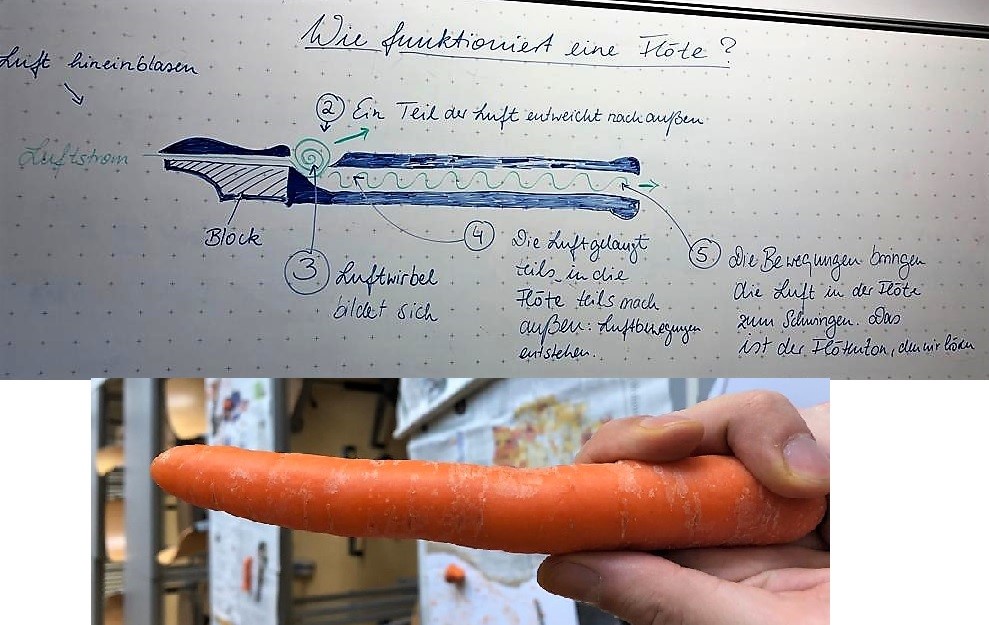 Wie funktioniert eine Flöte ?
Luft hineinblasen
② Ein Teil der Luft entweicht nach außen
Luftstrom
Block
③ Luftwirbel
bildet sich
④ Die Luft gelangt
teils in die
Flöte teils nach
außen: Luftbewegungen
entstehen.
⑤ Die Bewegungen bringen
die Luft in der Flöte
zum Schwingen. Das
ist der Flötenton, den wir hören